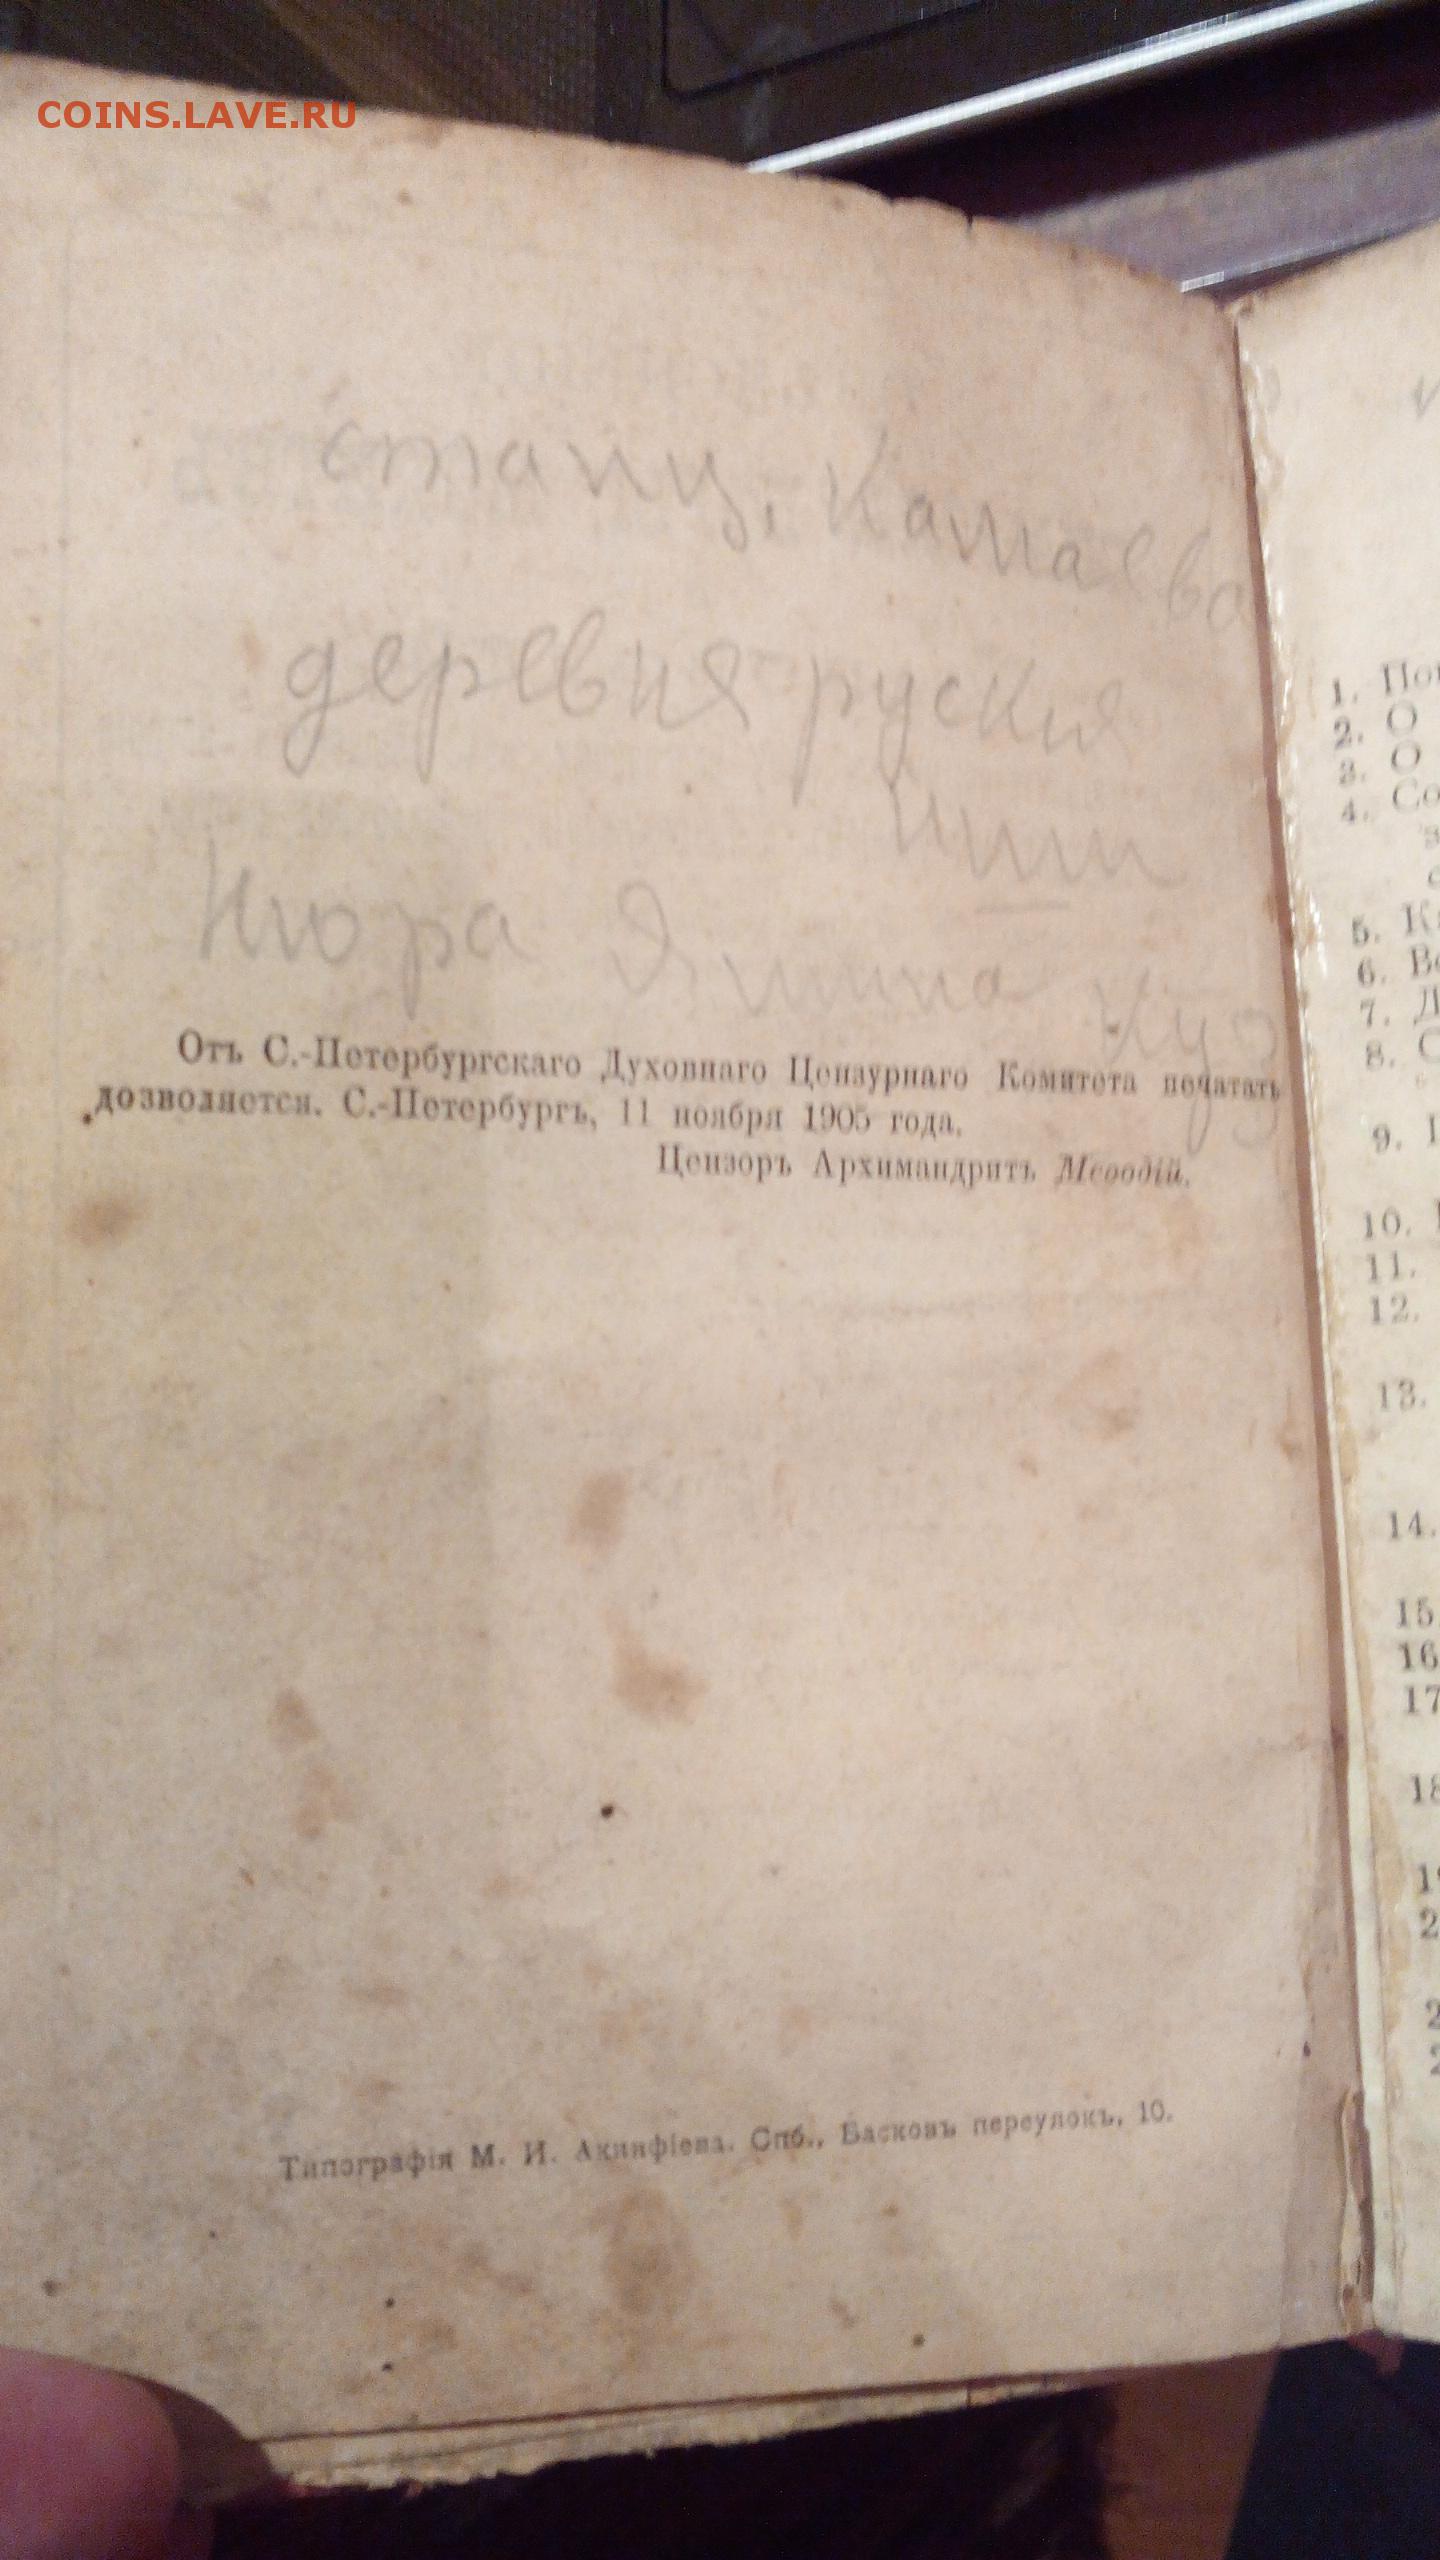 COINS.LAVE.RU
станц. Камаева
деревня руския
Нюра Яшина Куз
Отъ С.-Петербургскаго Духовнаго Цензурнаго Комитета печатать
дозволяется. С.-Петербургъ, 11 ноября 1905 года.
Цензоръ Архимандритъ Меѳодій.
Типографія М. И. Акинфіева. Спб., Басковъ переулокъ, 10.
1. Пон
2. О
3. О
4. Со
5. К
6. Во
7. Д
8. С
9.
10.
11.
12.
13.
14.
15
16
17
18
19
2
2
2